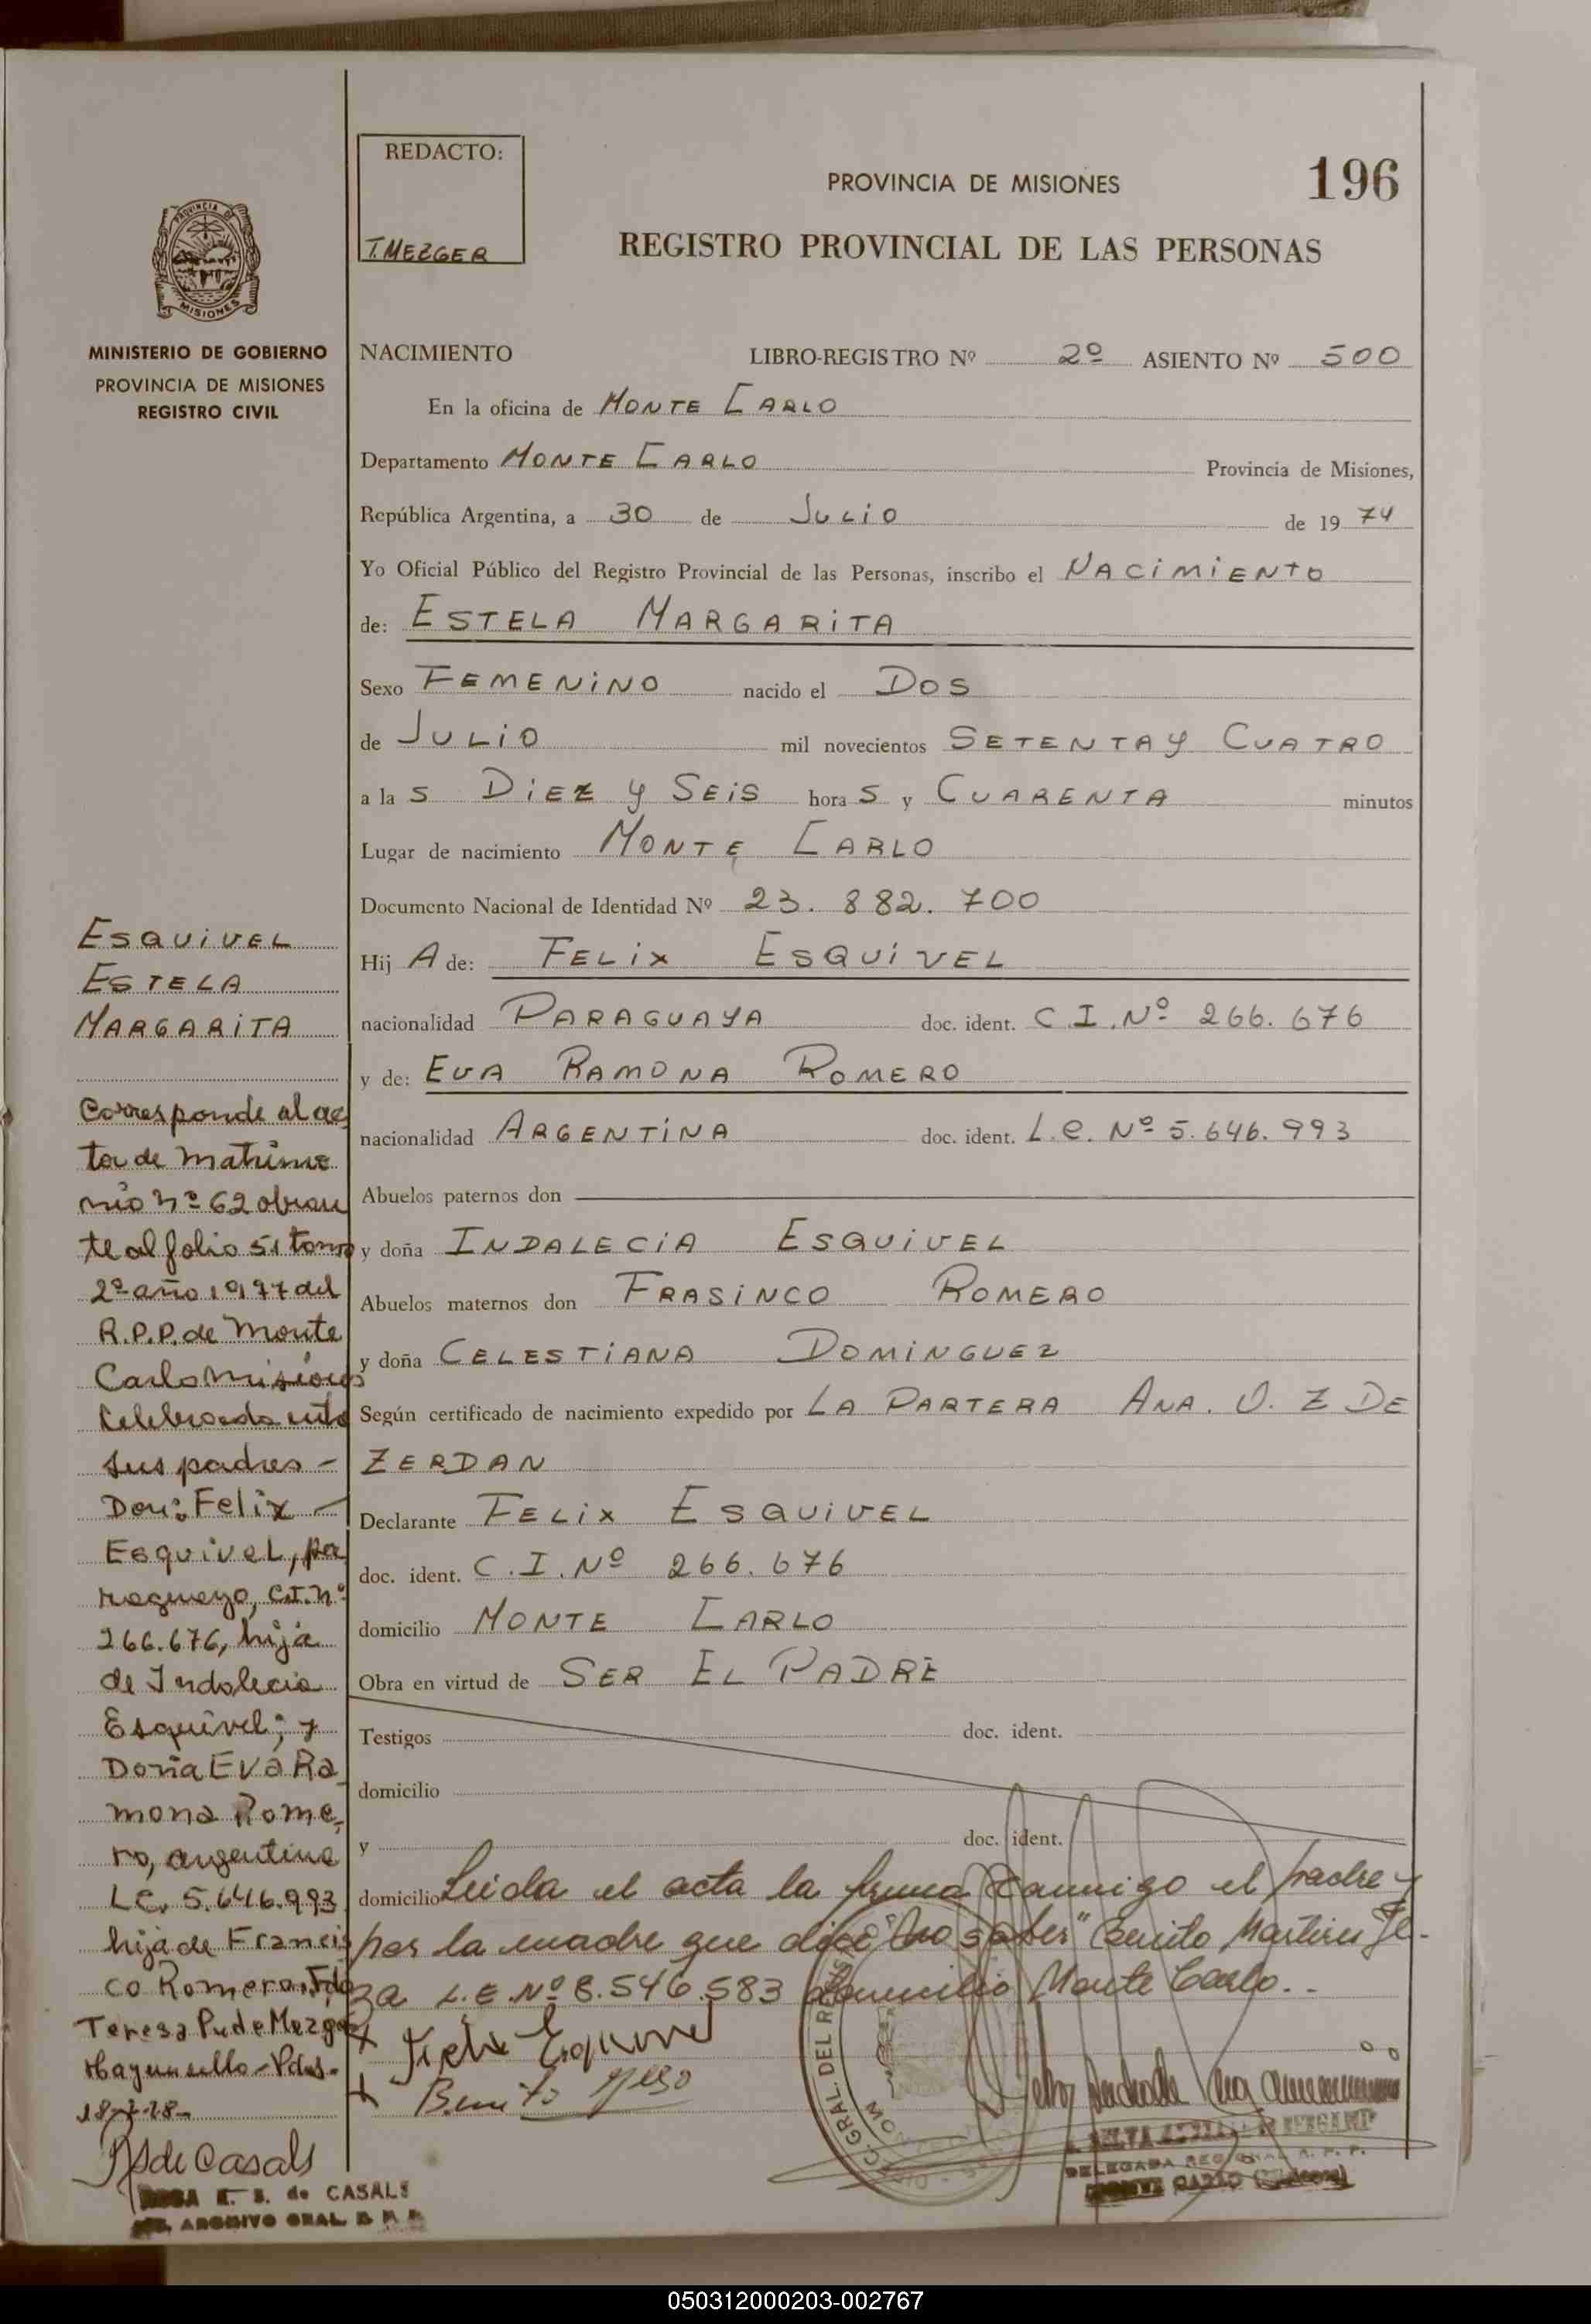 REDACTO:
T. MEZGER
PROVINCIA DE MISIONES
196
REGISTRO PROVINCIAL DE LAS PERSONAS
PROVINCIA DE
MISIONES
MINISTERIO DE GOBIERNO
PROVINCIA DE MISIONES
REGISTRO CIVIL
NACIMIENTO LIBRO-REGISTRO Nº 2º ASIENTO Nº 500
En la oficina de MONTE CARLO
Departamento MONTE CARLO Provincia de Misiones,
República Argentina, a 30 de JULIO de 19 74
Yo Oficial Público del Registro Provincial de las Personas, inscribo el NACIMIENTO
de: ESTELA MARGARITA
Sexo FEMENINO nacido el DOS
de JULIO mil novecientos SETENTA Y CUATRO
a la S DIEZ Y SEIS hora S y CUARENTA minutos
Lugar de nacimiento MONTE CARLO
Documento Nacional de Identidad Nº 23.882.700
Hij A de: FELIX ESQUIVEL
nacionalidad PARAGUAYA doc. ident. C.I.Nº 266.676
y de: EVA RAMONA ROMERO
nacionalidad ARGENTINA doc. ident. L.C. Nº 5.646.993
Abuelos paternos don
y doña INDALECIA ESQUIVEL
Abuelos maternos don FRASINCO ROMERO
y doña CELESTIANA DOMINGUEZ
Según certificado de nacimiento expedido por LA PARTERA ANA. O. Z DE
ZERDAN
Declarante FELIX ESQUIVEL
doc. ident. C.I.Nº 266.676
domicilio MONTE CARLO
Obra en virtud de SER EL PADRE
Testigos doc. ident.
domicilio
y doc. ident.
domicilio Leida el acta la firma conmigo el padre y
por la madre que dice "no saber" Benito Martires Je-
za L.E.Nº 8.546.583 domicilio Monte Carlo.-
Felix Esquivel
Benito
ESQUIVEL
ESTELA
MARGARITA
Corresponde al ac
ta de matrimo
nio nº 62 obran
te al folio 51 tomo
2º año 1977 del
R.P.P. de Monte
Carlo Misiones
Celebrado entre
sus padres -
Don: Felix -
Esquivel, pa
raguayo, C.I. nº
266.676, hijo
de Indalecia
Esquivel; y
Doña Eva Ra
mona Rome-
ro, argentina
LC. 5.646.993
hija de Francis
co Romero. Fdo
Teresa P. de Mezger
Pdas.-
de Casals
ROSA E. S. de CASALS
ARCHIVO GRAL. R. P. P.
GRAL. DEL
DELEGADA REGIONAL R. P. P.
MONTE CARLO (Misiones)
050312000203-002767